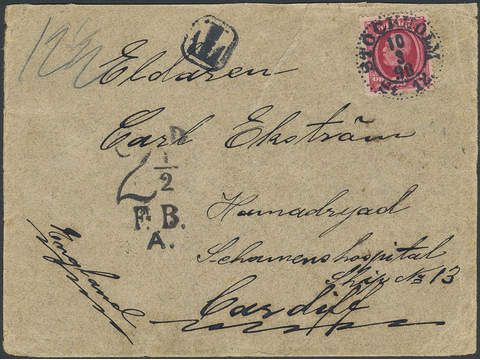 12½
T
STOCKHOLM
10
3
90
Eldaren
Carl Ekström
2½
F.B.
A.
Hamadryad
Seamenshospital
Ship No 13
Cardiff
England